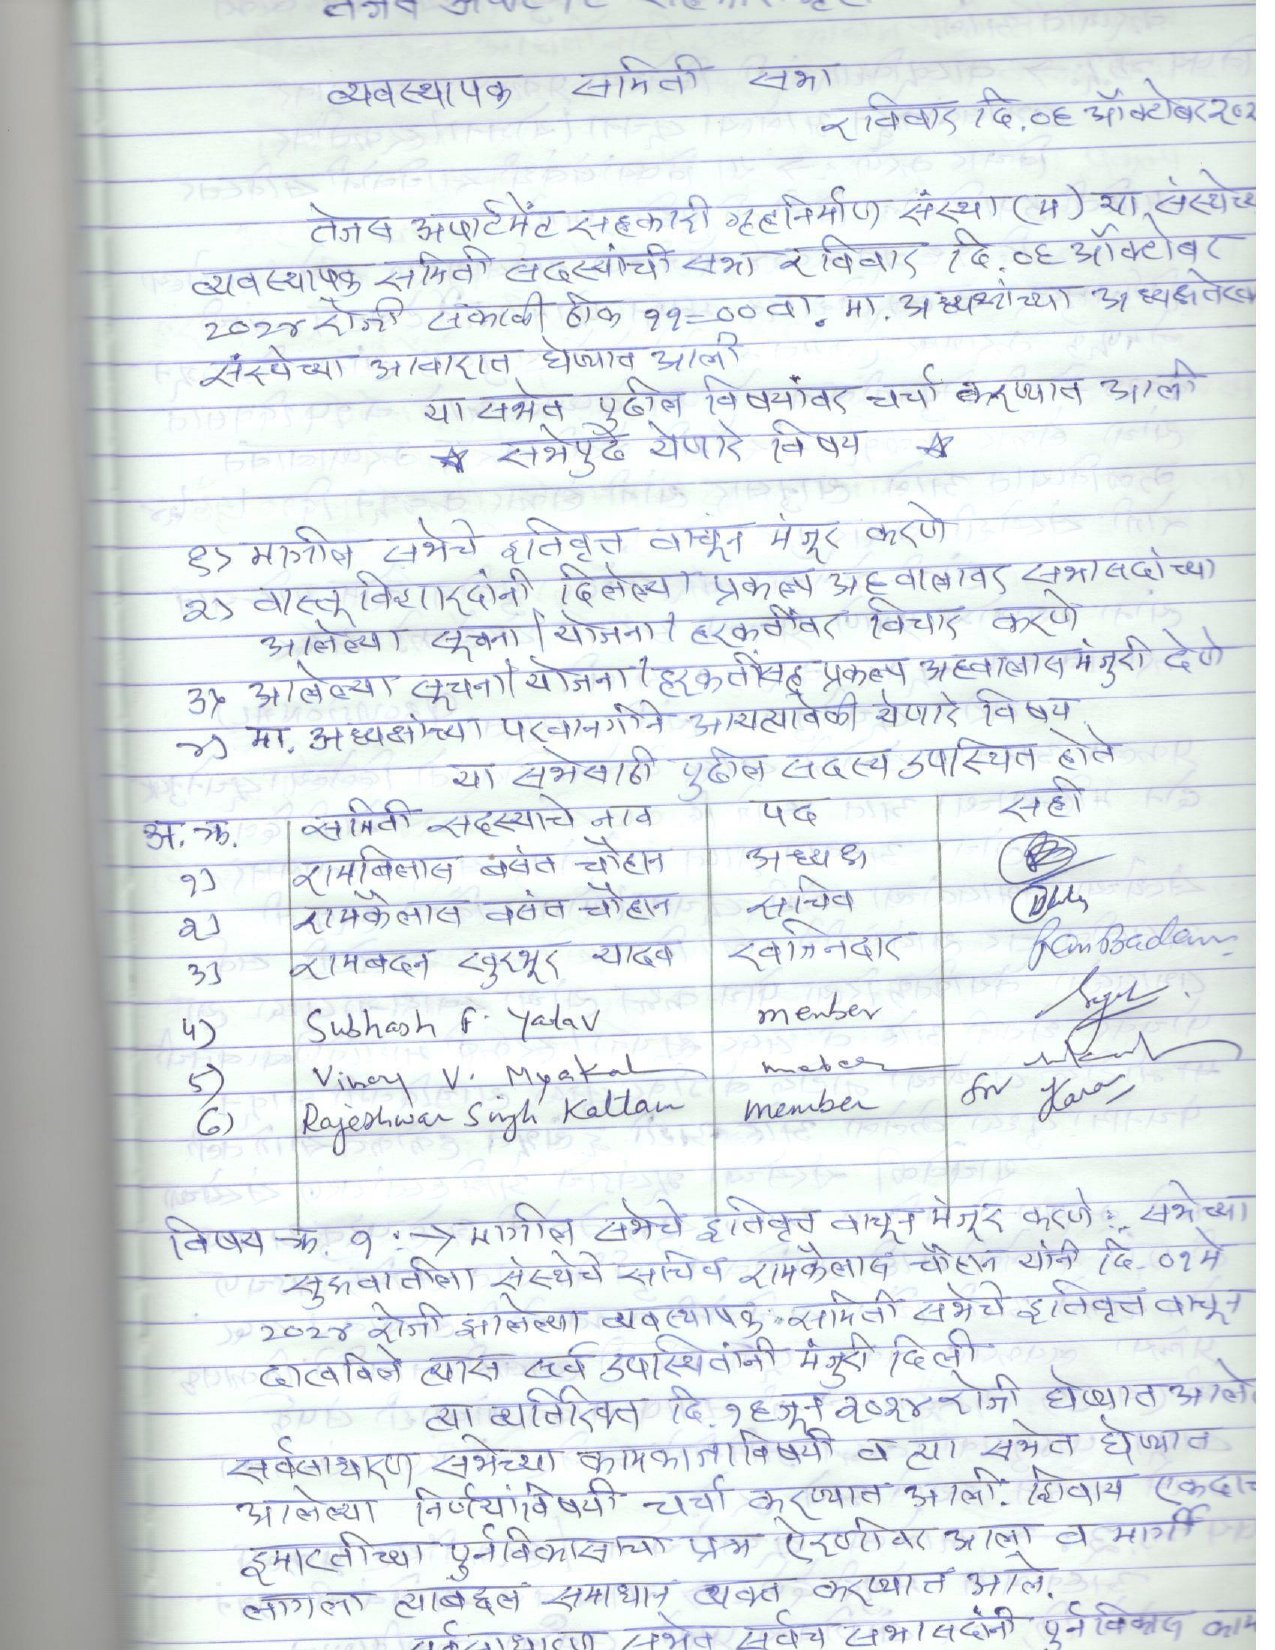 व्यवस्थापक समिती सभा
रविवार दि. ०६ ऑक्टोबर २०२
तेजस अपार्टमेंट सहकारी गृहनिर्माण संस्था (म) या संस्थेच्या
व्यवस्थापक समिती सदस्यांची सभा रविवार दि. ०६ ऑक्टोबर
२०२४ रोजी सकाळी ठीक ११=०० वा. मा. अध्यक्षांच्या अध्यक्षतेखा
संस्थेच्या आवारात घेण्यात आली
या सभेत पुढील विषयांवर चर्चा करण्यात आली
☆ सभेपुढे येणारे विषय ☆
१) मागील सभेचे इतिवृत्त वाचून मंजूर करणे
२) वास्तूविशारदांनी दिलेल्या प्रकल्प अहवालावर सभासदांच्या
आलेल्या सूचना / योजना / हरकतींवर विचार करणे
३) आलेल्या सूचना / योजना / हरकतींसह प्रकल्प अहवालास मंजुरी देणे
४) मा. अध्यक्षांच्या परवानगीने आयत्यावेळी येणारे विषय
या सभेसाठी पुढील सदस्य उपस्थित होते
अ. क्र. समिती सदस्याचे नाव पद सही
१) रामबिलास बसंत चौहान अध्यक्ष
२) रामकैलास वसंत चौहान सचिव
३) रामबदन खुरभूर यादव खजिनदार RamBadan
४) Subhash F. Yadav member
5) Vinay V. Myakal
6) Rajeshwar Singh Kattam member
विषय क्र. १ :→ मागील सभेचे इतिवृत्त वाचून मंजूर करणे :. सभेच्या
सुरुवातीला संस्थेचे सचिव रामकैलास चौहान यांनी दि. ०१ मे
२०२४ रोजी झालेल्या व्यवस्थापक समिती सभेचे इतिवृत्त वाचून
दाखविले त्यास सर्व उपस्थितांनी मंजुरी दिली
त्या व्यतिरिक्त दि. १६ जून २०२४ रोजी घेण्यात आले
सर्वसाधारण सभेच्या कामकाजाविषयी व त्या सभेत घेण्यात
आलेल्या निर्णयांविषयी चर्चा करण्यात आली. शिवाय एकदाच
इमारतीच्या पुर्नविकासाचा प्रश्न ऐरणीवर आला व मार्गी
लागला त्याबद्दल समाधान व्यक्त करण्यात आले.
सर्वसाधारण सभेत सर्वच सभासदांनी पुर्नविकास काम